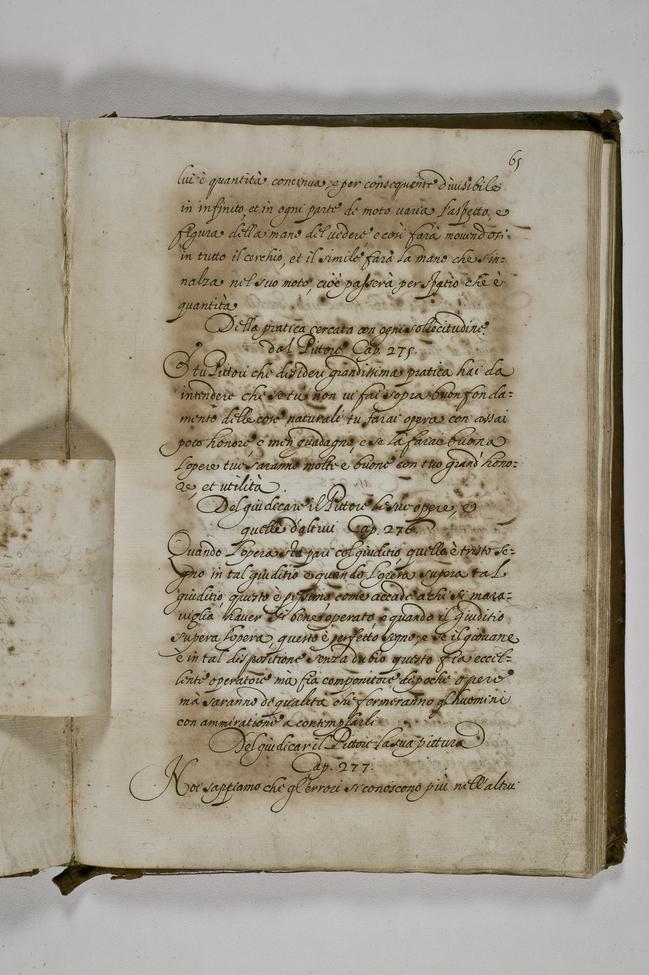 65
lui è quantità continua, e per consequente diuisibile
in infinito, et in ogni parte di moto varia l'aspetto, e
figura della mano del uedere e così farà mouendosi
in tutto il cerchio, et il simile farà la mano che s'in=
nalza nel suo moto, cioè passerà per spatio che è
quantità
Della pratica cercata con ogni sollecitudine
dal Pittore Cap. 275.
O tu Pittore che desideri grandissima pratica hai da
intendere che se tu non ui fai sopra buon fonda=
mento delle cose naturali tu farai opera con assai
poco honore, e men guadagno, e se la farai buona
l'opere tue saranno molte e buone con tuo grand' hono=
re, et utilità.
Del giudicare il Pittore le sue opere, e
quelle d'altrui Cap. 276.
Quando l'opera sta pari col giuditio quello è tristo se=
gno in tal giuditio e quando l'opera supera tal
giuditio questo è pessimo come accade a chi si mara=
viglia hauer sì bene operato e quando il giuditio
supera l'opera, questo è perfetto segno, e se il giouane
è in tal dispositione senza dubio questo fia eccel=
lente operatore ma fia componitore de poche opere
mà saranno di qualità che fermeranno gl'huomini
con ammiratione a contemplarli
Del giudicar il Pittore la sua pittura
Cap. 277.
Noi sappiamo che gl'errori si conoscono più nell'altrui